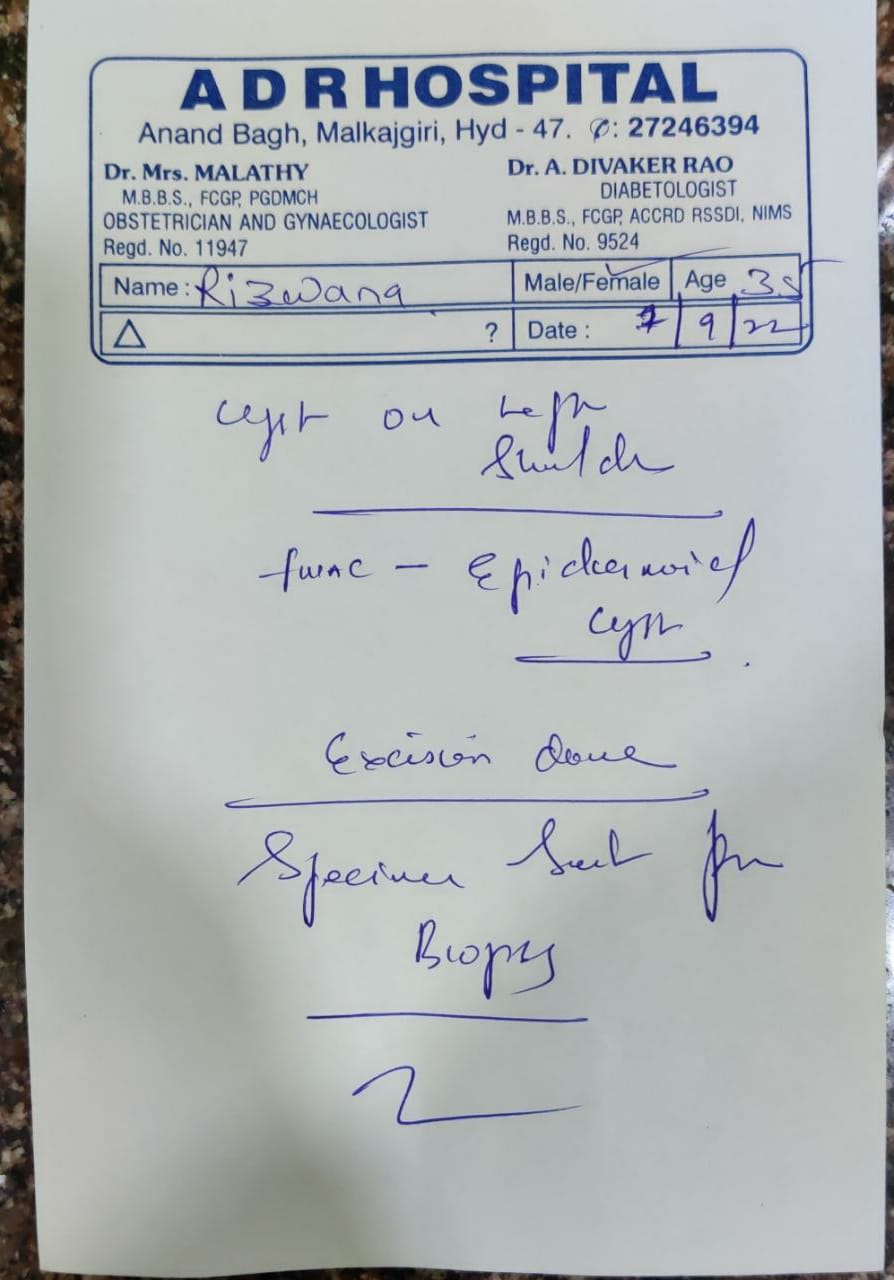 A D R HOSPITAL
Anand Bagh, Malkajgiri, Hyd - 47. ✆: 27246394
Dr. Mrs. MALATHY
M.B.B.S., FCGP, PGDMCH
OBSTETRICIAN AND GYNAECOLOGIST
Regd. No. 11947
Dr. A. DIVAKER RAO
DIABETOLOGIST
M.B.B.S., FCGP, ACCRD RSSDI, NIMS
Regd. No. 9524
Name : Rizwana Male/Female Age 35
△ ? Date : 7/9/22
Cyst on Left
Shoulder
FNAC - Epidermoid
Cyst
Excision done
Specimen Sent for
Biopsy